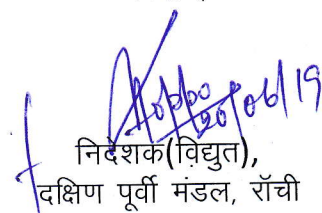 20/06/19
निदेशक(विद्युत),
दक्षिण पूर्वी मंडल, रॉंची